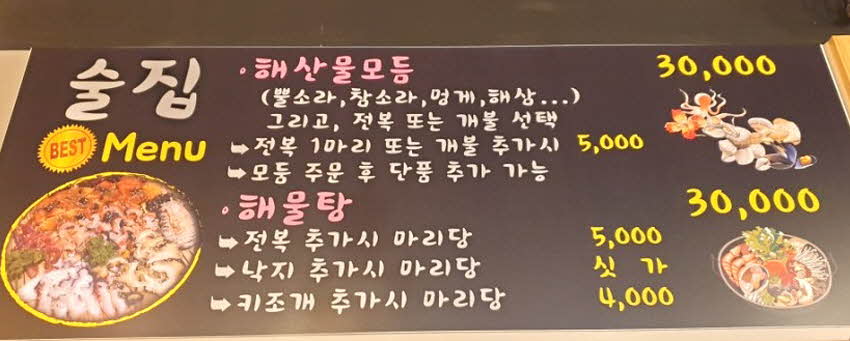 술집
BEST Menu
·해산물모듬 30,000
(뿔소라,참소라,멍게,해삼...)
그리고, 전복 또는 개불 선택
➥전복 1마리 또는 개불 추가시 5,000
➥모둠 주문 후 단품 추가 가능
·해물탕 30,000
➥전복 추가시 마리당 5,000
➥낙지 추가시 마리당 싯가
➥키조개 추가시 마리당 4,000